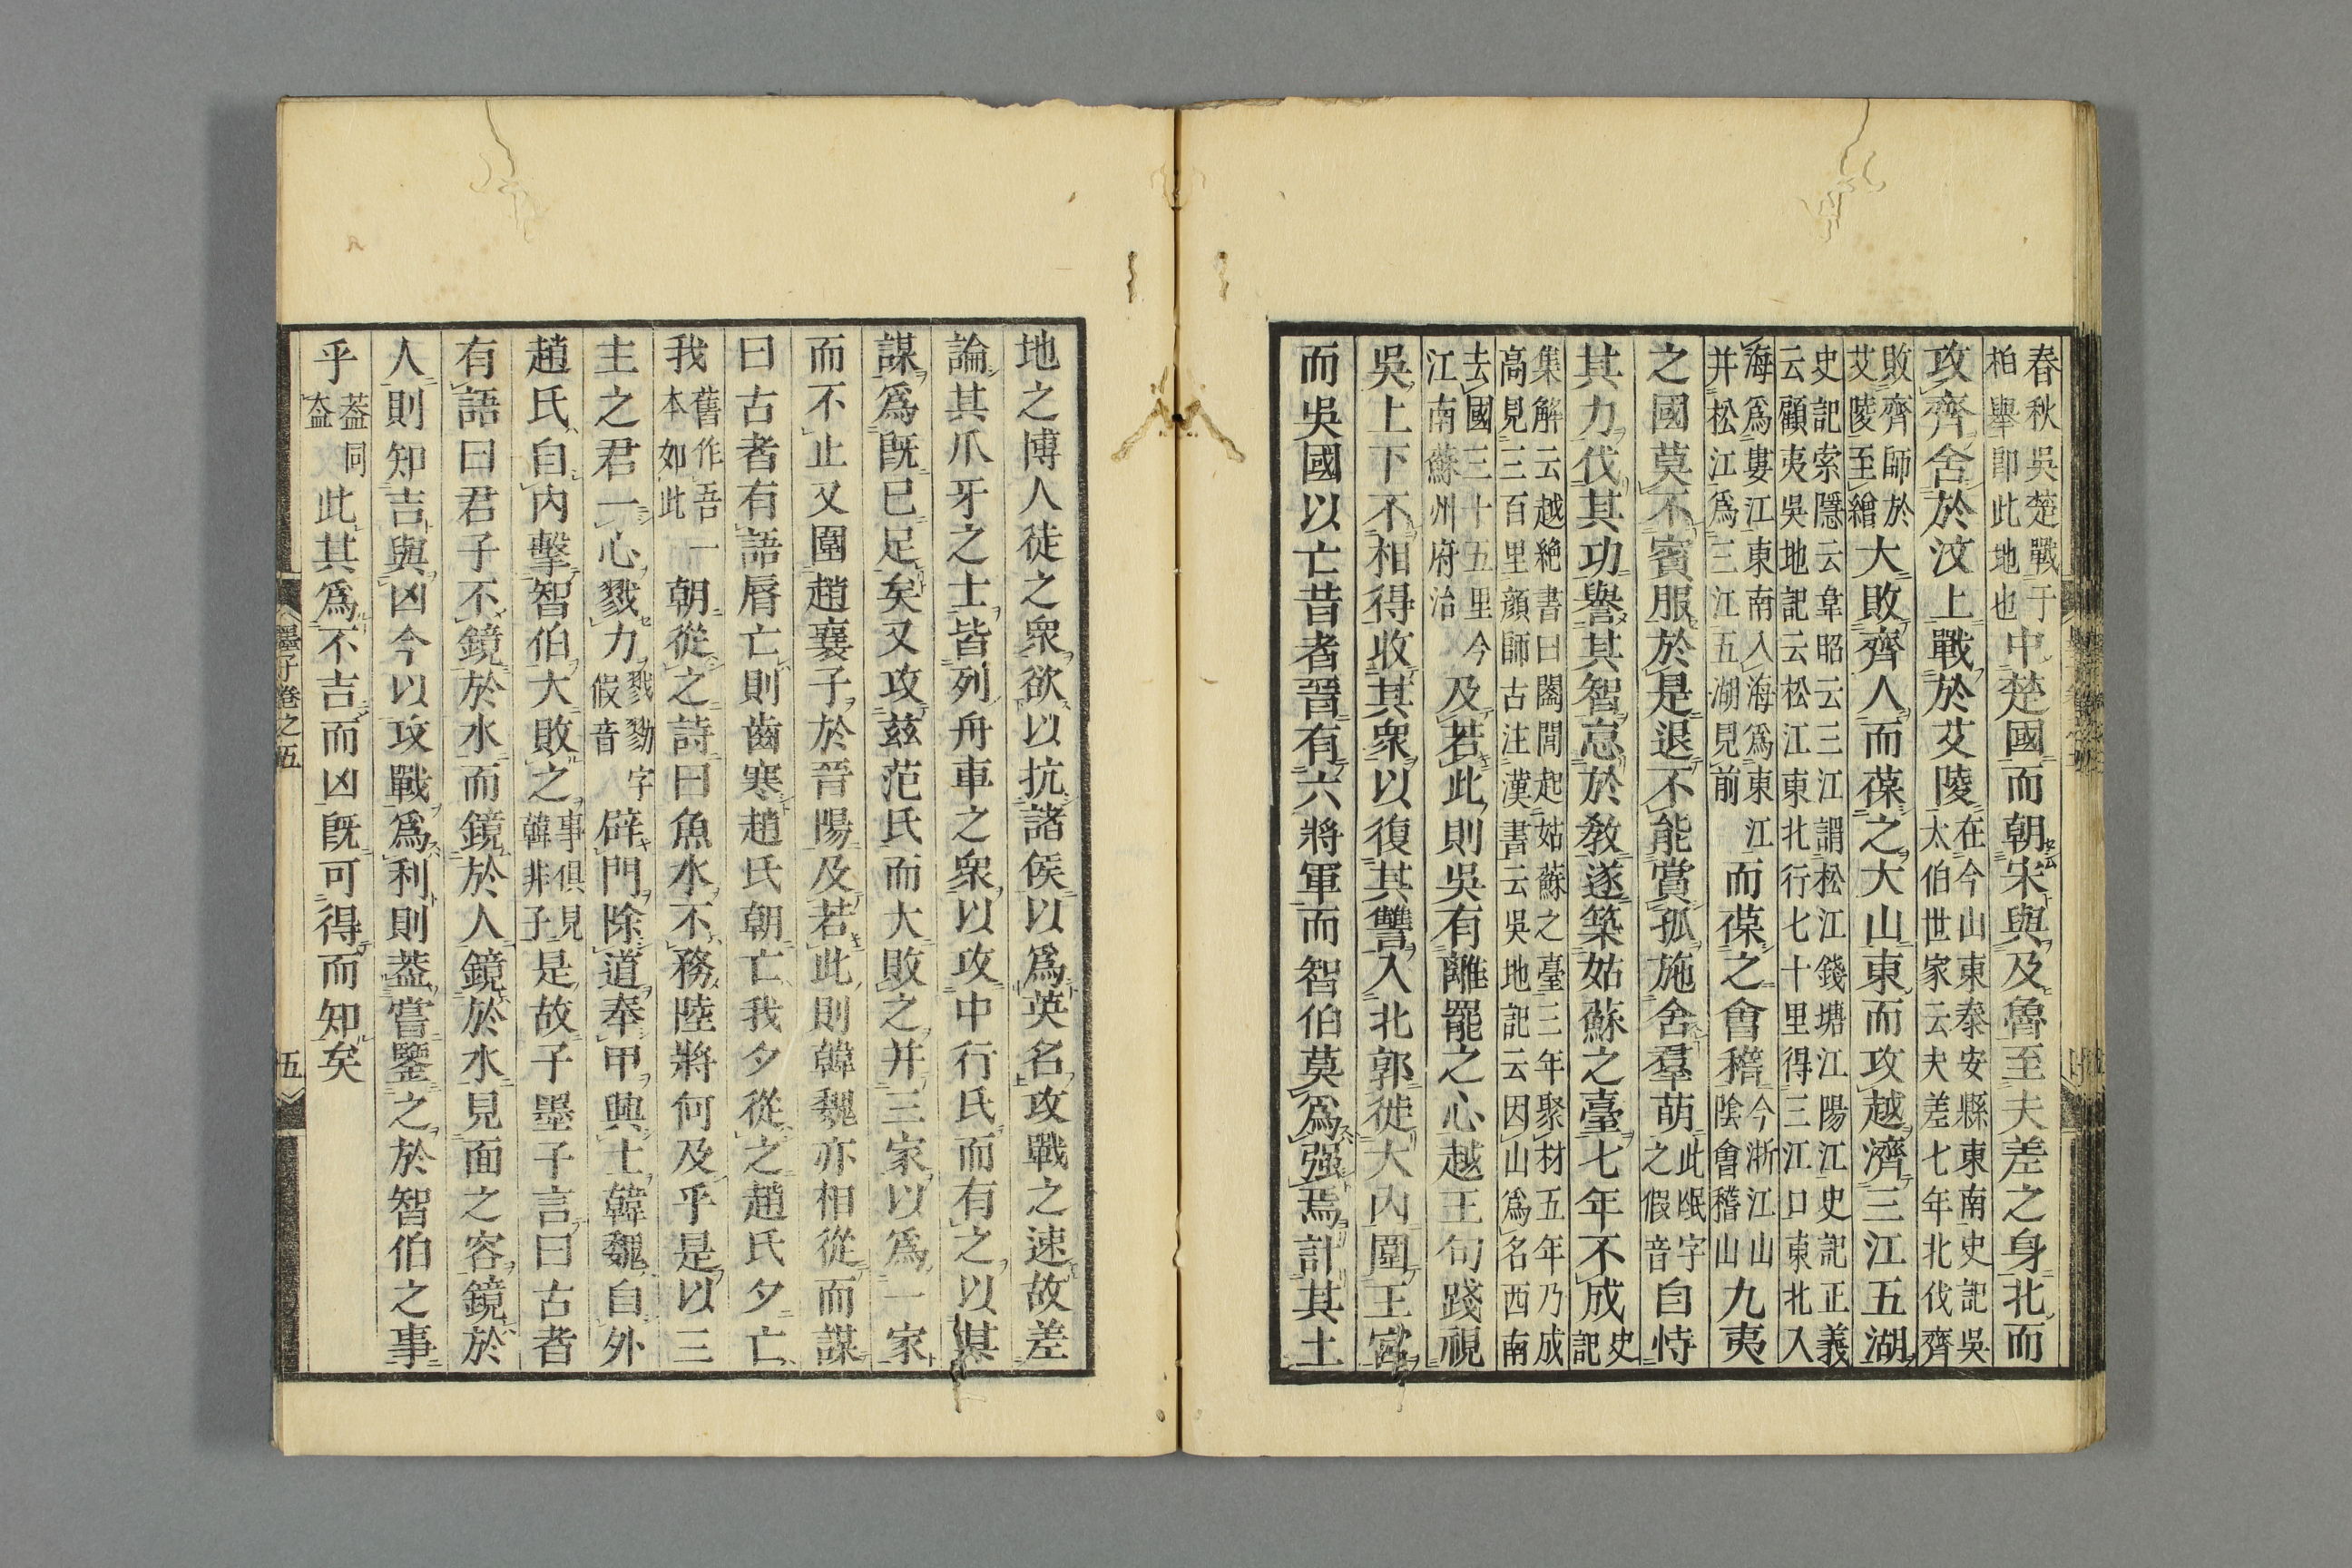 春秋吳楚戰于柏舉卽此地也中楚國而朝宋與及魯至夫差之身北而
攻齊舍於汶上戰於艾陵在今山東泰安縣東南史記吳太伯世家云夫差七年北伐齊
敗齊師於艾陵至繒大敗齊人而葆之大山東而攻越濟三江五湖
史記索隱云韋昭云三江謂松江錢塘江陽江江史記正義云顧夷吳地記云松江東北行七十里得三江口東北入
海爲婁江東南入海爲東江并松江爲三江五湖見前而葆之會稽今浙江山陰會稽山九夷
之國莫不賓服於是退不能賞孤施舍羣萌此氓字之假音自恃
其力伐其功譽其智怠於敎遂築姑蘇之臺七年不成史記
集解云越絶書曰闔閭起姑蘇之臺三年聚材五年乃成高見三百里顔師古注漢書云吳地記云因山爲名西南
去國三十五里今江南蘇州府治及若此則吳有離罷之心越王句踐視
吳上下不相得收其衆以復其讐入北郭徙大内圍王宮
而吳國以亡昔者晉有六將軍而智伯莫爲强焉計其土
地之博人徒之衆欲以抗諸侯以爲英名攻戰之速故差
論其爪牙之士皆列舟車之衆以攻中行氏而有之以其
謀爲旣已足矣又攻茲范氏而大敗之并三家以爲一家
而不止又圍趙襄子於晉陽及若此則韓魏亦相從而謀
曰古者有語脣亡則齒寒趙氏朝亡我夕從之趙氏夕亡
我舊作吾一本如此朝從之詩曰魚水不務陸將何及乎是以三
主之君一心戮力戮勠字假音辟門除道奉甲興士韓魏自外
趙氏自内擊智伯大敗之事俱見韓非子是故子墨子言曰古者
有語曰君子不鏡於水而鏡於人鏡於水見面之容鏡於
人則知吉與凶今以攻戰爲利則葢嘗鑒之於智伯之事
乎葢同盍此其爲不吉而凶旣可得而知矣
墨子卷之五
五